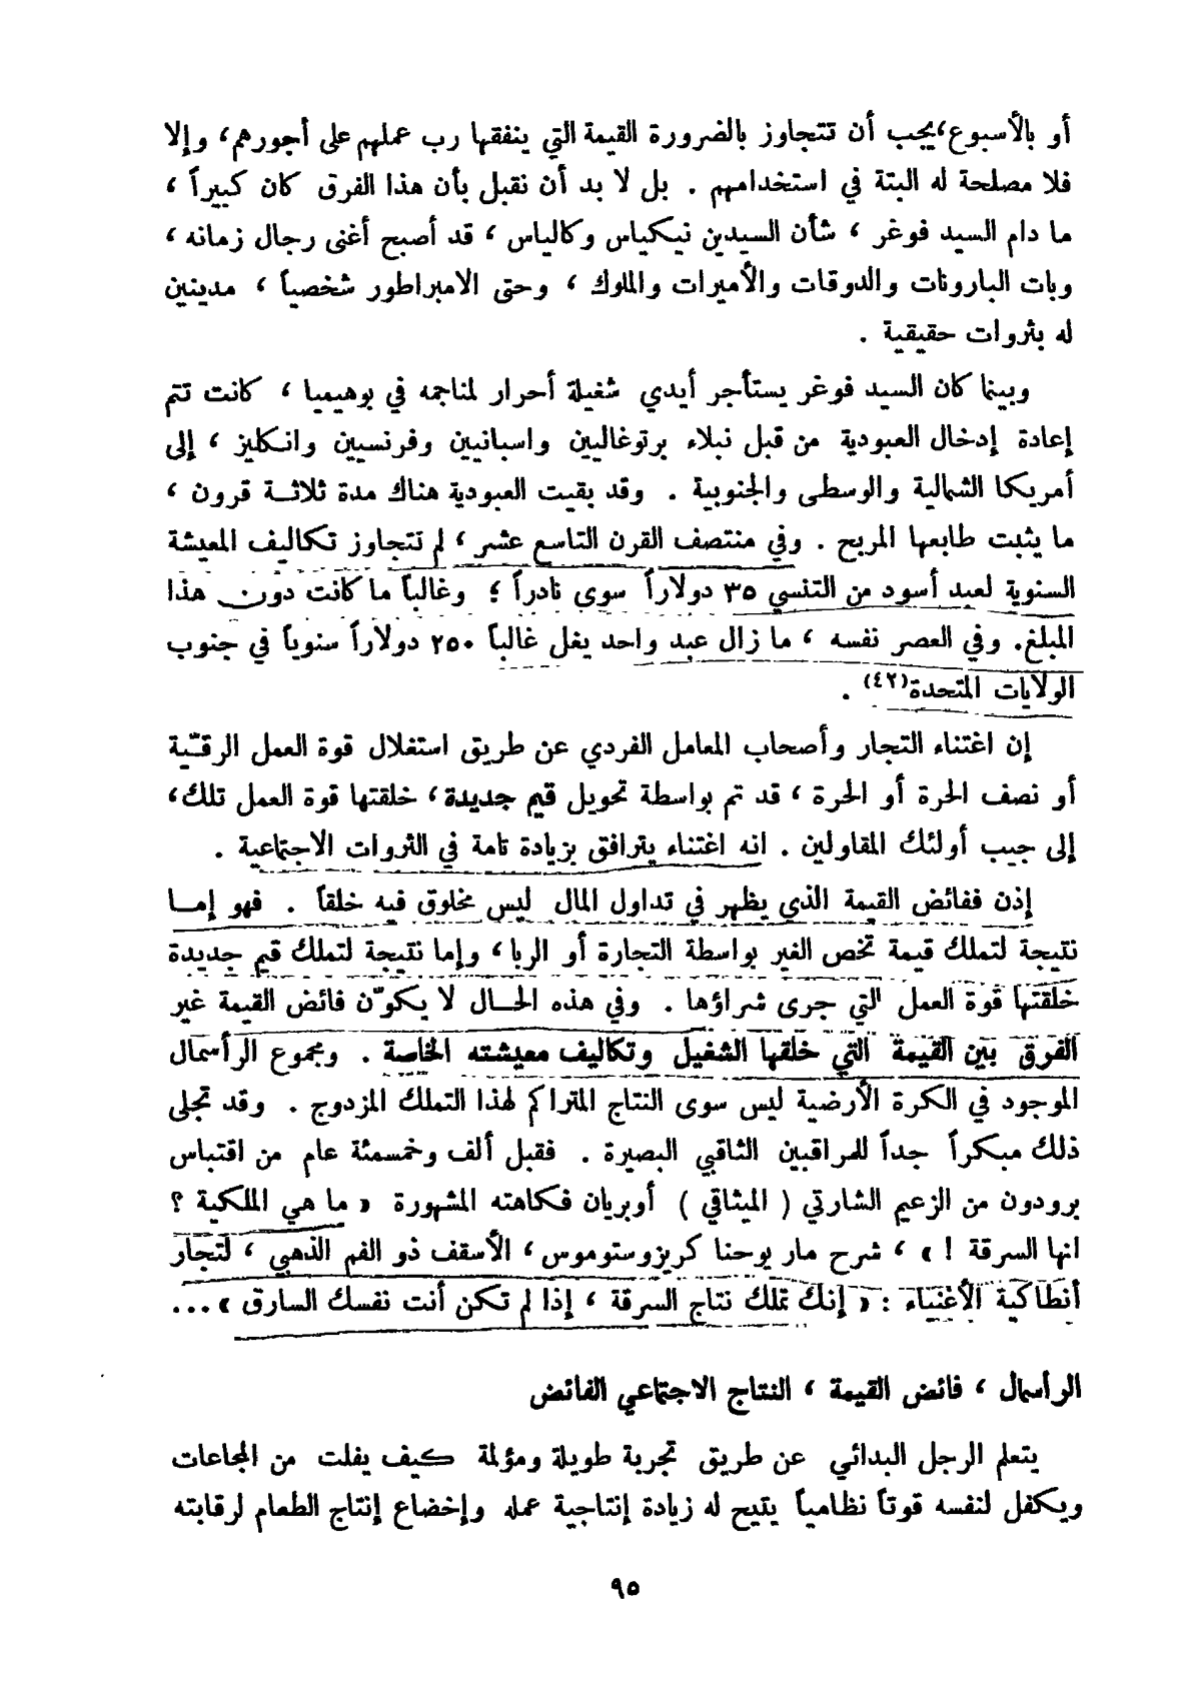 أو بالأسبوع، يجب أن تتجاوز بالضرورة القيمة التي ينفقها رب عملهم على أجورهم، وإلا
فلا مصلحة له البتة في استخدامهم . بل لا بد أن نقبل بأن هذا الفرق كان كبيراً ،
ما دام السيد فوغر ، شأن السيدين نيكياس وكالياس ، قد أصبح أغنى رجال زمانه ،
وبات البارونات والدوقات والأميرات والملوك ، وحتى الامبراطور شخصياً ، مدينين
له بثروات حقيقية .
وبينما كان السيد فوغر يستأجر أيدي شغيلة أحرار لمناجمه في بوهيميا ، كانت تتم
إعادة إدخال العبودية من قبل نبلاء برتوغاليين واسبانيين وفرنسيين وانكليز ، إلى
أمريكا الشمالية والوسطى والجنوبية . وقد بقيت العبودية هناك مدة ثلاثة قرون ،
ما يثبت طابعها المربح . وفي منتصف القرن التاسع عشر ، لم تتجاوز تكاليف المعيشة
السنوية لعبد أسود من التنسي ٣٥ دولاراً سوى نادراً ؛ وغالباً ما كانت دون هذا
المبلغ. وفي العصر نفسه ، ما زال عبد واحد يغل غالباً ٢٥٠ دولاراً سنوياً في جنوب
الولايات المتحدة(٤٢) .
إن اغتناء التجار وأصحاب المعامل الفردي عن طريق استغلال قوة العمل الرقّية
أو نصف الحرة أو الحرة ، قد تم بواسطة تحويل قيم جديدة ، خلقتها قوة العمل تلك،
إلى جيب أولئك المقاولين . انه اغتناء يترافق بزيادة تامة في الثروات الاجتماعية .
إذن ففائض القيمة الذي يظهر في تداول المال ليس مخلوق فيه خلقاً . فهو إما
نتيجة لتملك قيمة تخص الغير بواسطة التجارة أو الربا ، وإما نتيجة لتملك قيم جديدة
خلقتها قوة العمل التي جرى شراؤها . وفي هذه الحال لا يكوّن فائض القيمة غير
الفرق بين القيمة التي خلقها الشغيل وتكاليف معيشته الخاصة . ومجموع الرأسمال
الموجود في الكرة الأرضية ليس سوى النتاج المتراكم لهذا التملك المزدوج . وقد تجلى
ذلك مبكراً جداً للمراقبين الثاقبي البصيرة . فقبل ألف وخمسمئة عام من اقتباس
برودون من الزعيم الشارتي ( الميثاقي ) أوبريان فكاهته المشهورة « ما هي الملكية ؟
انها السرقة ! » ، شرح مار يوحنا كريزوستوموس ، الأسقف ذو الفم الذهبي ، لتجار
أنطاكية الأغنياء : « إنك تملك نتاج السرقة ، إذا لم تكن أنت نفسك السارق » ...
الرأسمال ، فائض القيمة ، النتاج الاجتماعي الفائض
يتعلم الرجل البدائي عن طريق تجربة طويلة ومؤلمة كيف يفلت من المجاعات
ويكفل لنفسه قوتاً نظامياً يتيح له زيادة إنتاجية عمله وإخضاع إنتاج الطعام لرقابته
٩٥